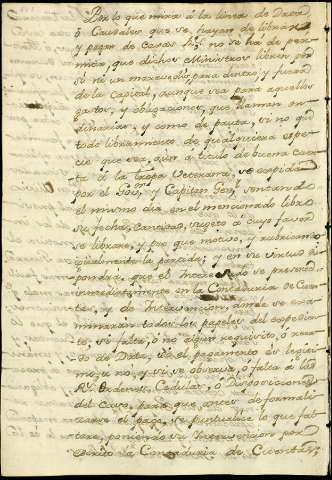 Por lo que mira á la linea de Data
ó Caudales que se hayan de librar
y pagar de Caxas R.s no se ha de per-
mitir, que dichos Ministros libren por
si ni un maravedi, para dentro y fuera
de la Capital, aunque sea para aquellos
gastos, y obligaciones, que llaman or-
dinarias, y como de pauta, si no que
todo libramiento de qualquiera espe-
cie que sea, aun á titulo de buena cuenta
á la Tropa Veterana, se expida
por el Gov.or y Capitan Gen.l sentando
el mismo dia en el mencionado libro
su fecha, cantidad, sugeto á cuyo favor
se librare, y por que motivo, y rubricando
igualmente la partida; y en su virtud dis-
pondrá, que el Interesado se presente
inmediatamente en la Contaduria de Cuen-
tas, y de Intervencion, donde se exa-
minaran todos los papeles del expedien-
te, si falta, ó no algun requisito, ó
de Data, si el pagamento es legiti-
mo, ó no, y si se observa, ó falta á las
R.s Ordenes, Cedulas, ó Disposiciones
del caso, para que antes de formali-
zarse el pago, se puntualice lo que fal-
tare, poniendo su Intervencion por
escrito la Contaduria de Cuentas,